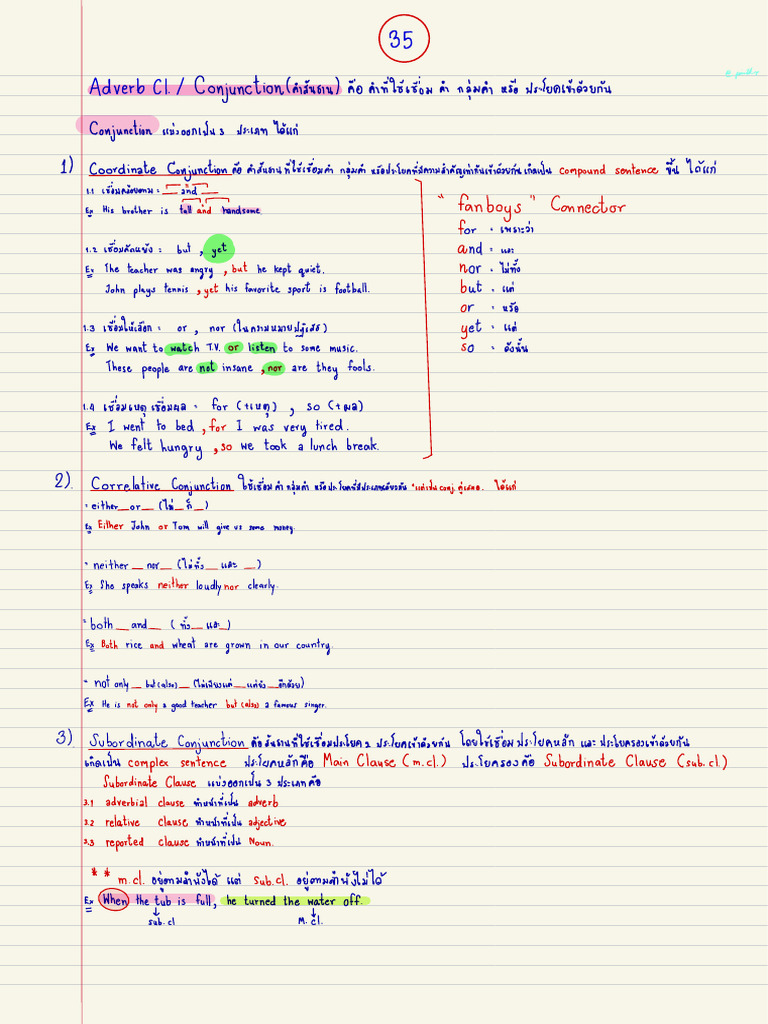 35
Adverb Cl. / Conjunction (คำสันธาน) คือ คำที่ใช้เชื่อม คำ กลุ่มคำ หรือ ประโยคเข้าด้วยกัน
Conjunction แบ่งออกเป็น 3 ประเภท ได้แก่
1) Coordinate Conjunction คือ คำสันธานที่ใช้เชื่อมคำ กลุ่มคำ หรือประโยคที่มีความสำคัญเท่ากันเข้าด้วยกัน เกิดเป็น compound sentence ขึ้น ได้แก่
1.1 เชื่อมคล้อยตาม = __ and __
Ex His brother is tall and handsome
1.2 เชื่อมขัดแย้ง = but , yet
Ex The teacher was angry , but he kept quiet.
John plays tennis , yet his favorite sport is football.
1.3 เชื่อมให้เลือก = or , nor (ในความหมายปฏิเสธ)
Ex We want to watch T.V. or listen to some music.
These people are not insane , nor are they fools.
1.4 เชื่อมเหตุเชื่อมผล = for (+เหตุ) , so (+ผล)
Ex I went to bed , for I was very tired.
We felt hungry , so we took a lunch break.
" fanboys " Connector
for = เพราะว่า
and = และ
nor = ไม่ทั้ง
but = แต่
or = หรือ
yet = แต่
so = ดังนั้น
2). Correlative Conjunction ใช้เชื่อม คำ กลุ่มคำ หรือประโยคที่มีประเภทเดียวกัน *แต่เป็น conj. คู่เสมอ. ได้แก่
= either__or__ (ไม่__ก็__)
Ex Either John or Tom will give us some money.
= neither __ nor__ (ไม่ทั้ง__ และ __)
Ex She speaks neither loudly nor clearly.
= both __and__ ( ทั้ง__ และ__)
Ex Both rice and wheat are grown in our country.
= not only __ but (also)__ (ไม่เพียงแต่__ แต่ยัง__อีกด้วย)
Ex He is not only a good teacher but (also) a famous singer.
3) Subordinate Conjunction คือสันธานที่ใช้เชื่อมประโยค 2 ประโยคเข้าด้วยกัน โดยใช้เชื่อม ประโยคหลัก และ ประโยครองเข้าด้วยกัน
เกิดเป็น complex sentence ประโยคหลักคือ Main Clause (m.cl.) ประโยครอง คือ Subordinate Clause (sub.cl.)
Subordinate Clause แบ่งออกเป็น 3 ประเภทคือ
3.1 adverbial clause ทำหน้าที่เป็น adverb
3.2 relative clause ทำหน้าที่เป็น adjective
3.3 reported clause ทำหน้าที่เป็น Noun.
* * m.cl. อยู่ตามลำพังได้ แต่ sub.cl. อยู่ตามลำพังไม่ได้
Ex When the tub is full, he turned the water off.
sub.cl M.cl.